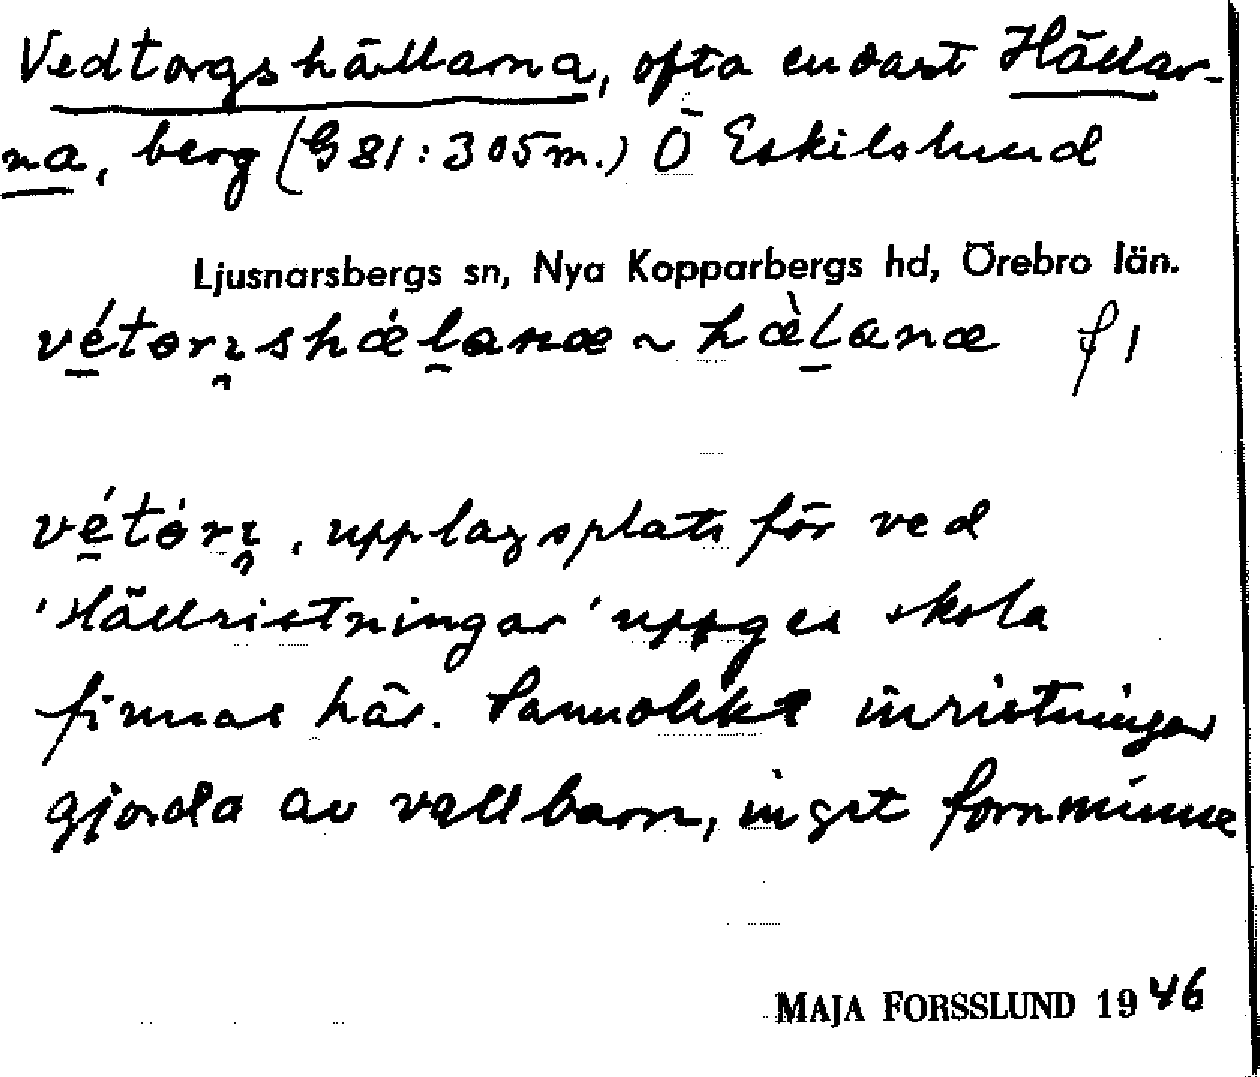 Vedtorgshällarna, ofta endast Hällar-
na, berg (G 81: 305 m.) Ö Eskilslund
Ljusnarsbergs sn, Nya Kopparbergs hd, Örebro län.
f 1
upplagsplats för ved
'Hällristningar' uppges skola
finnas här. Sannolikt inristningar
gjorda av vallbarn, inget fornminne
MAJA FORSSLUND 1946